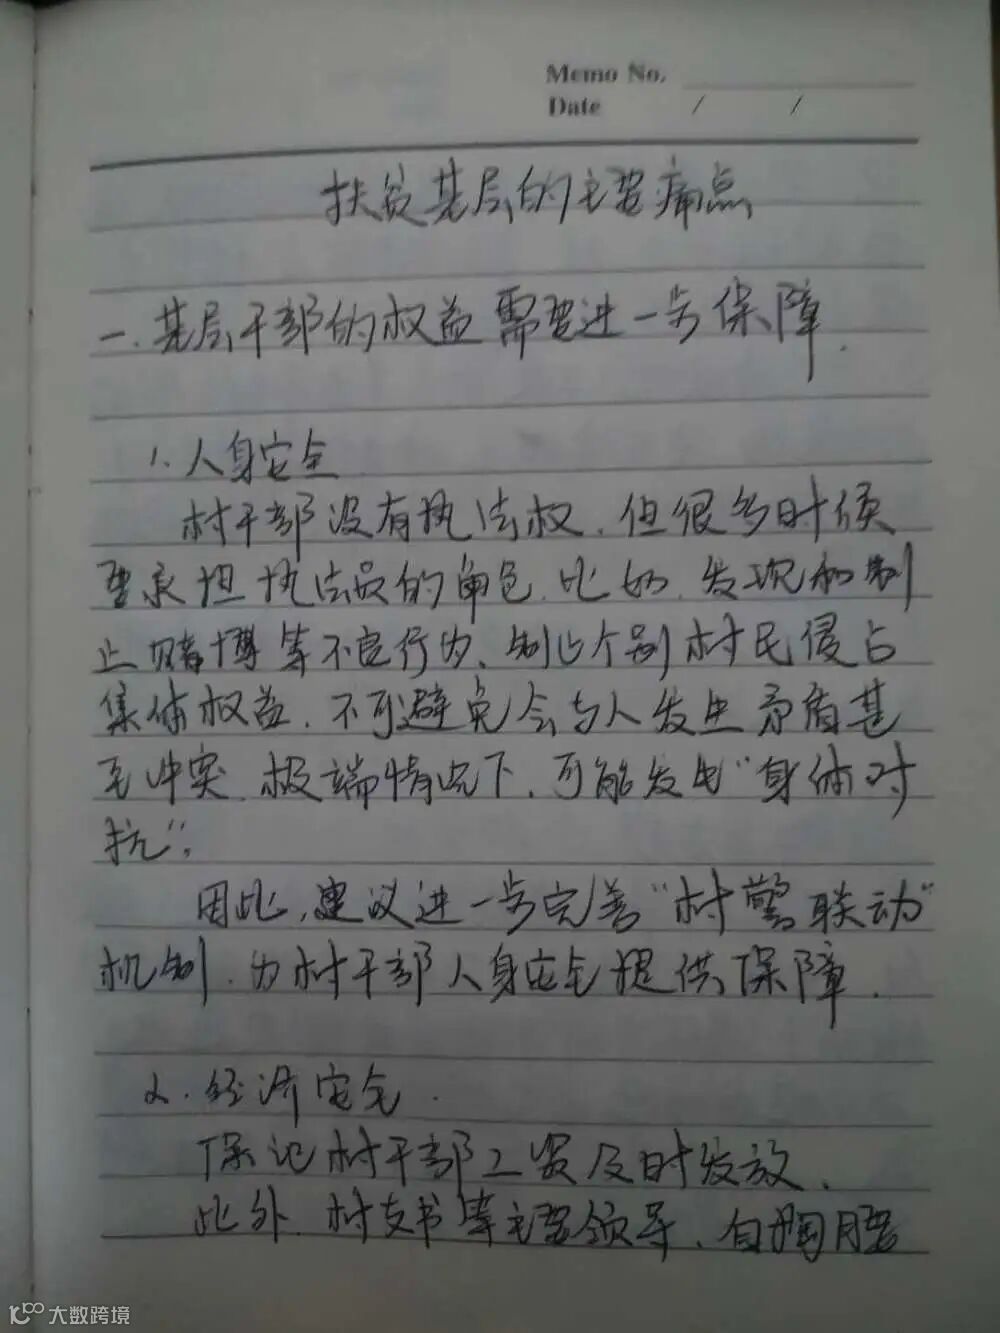 Memo No.
Date / /
扶贫基层的主要痛点
一.基层干部的权益需要进一步保障.
1.人身安全
村干部没有执法权,但很多时候
要承担执法员的角色.比如,发现和制
止赌博等不良行为、制止个别村民侵占
集体权益,不可避免会与人发生矛盾甚
至冲突.极端情况下,可能发生“身体对
抗”.
因此,建议进一步完善“村警联动”
机制,为村干部人身安全提供保障.
2.经济安全.
保证村干部工资及时发放.
此外,村支书等主要领导,自掏腰
大数跨境